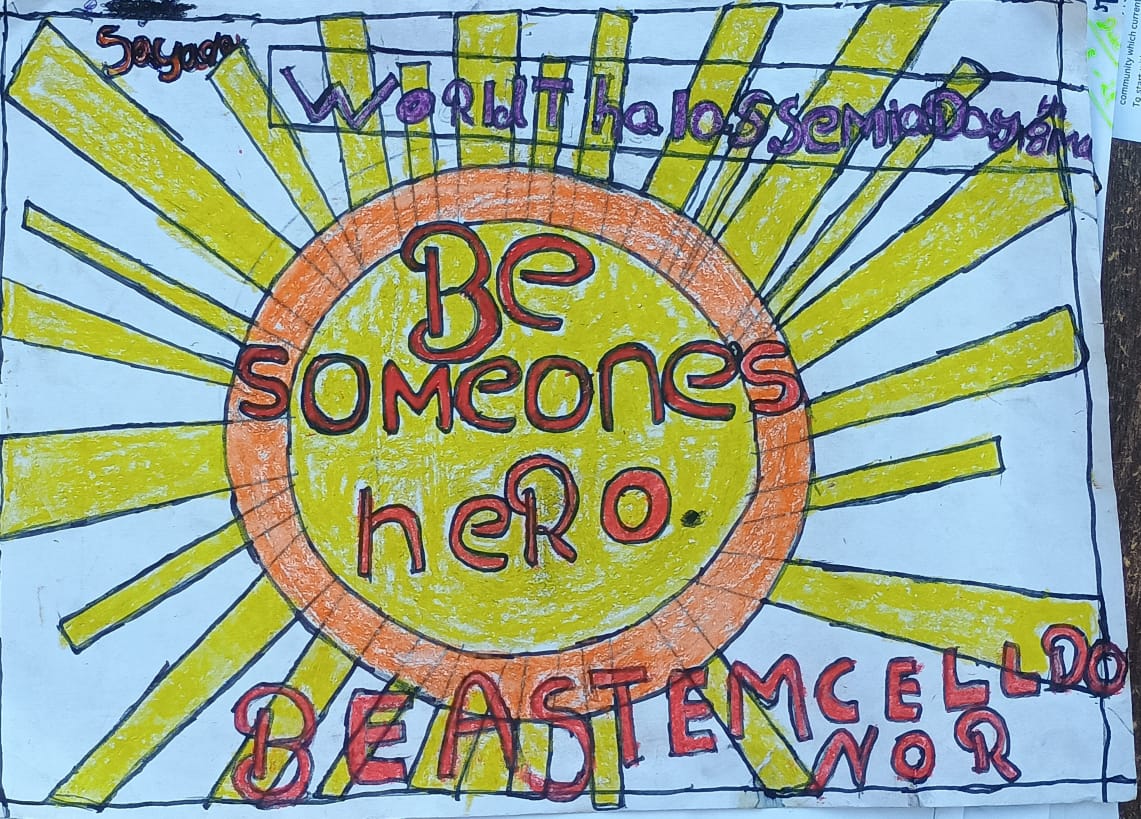 World Thalossemia Day 8 May
Be
someone's
heRo.
BE A STEM CELL DO
NOR
community which curren
To star